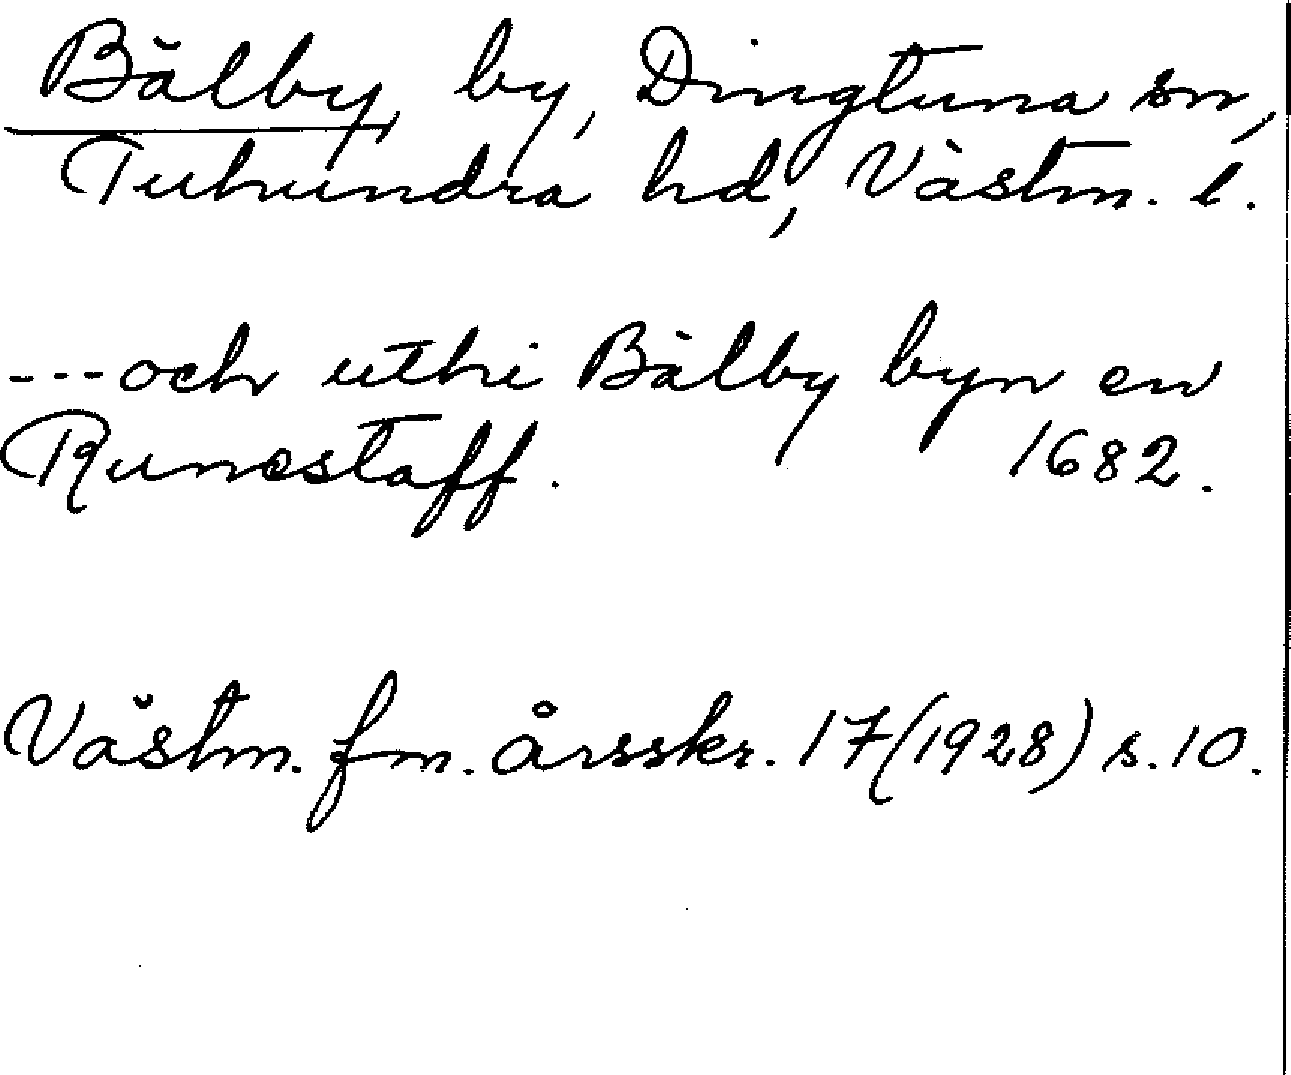 Bälby, by, Dingtuna sn,
Tuhundra hd, Västm. l.
---och uthi Bälby byn en
Runestaff. 1682.
Västm. fm. årsskr. 17(1928) s. 10.